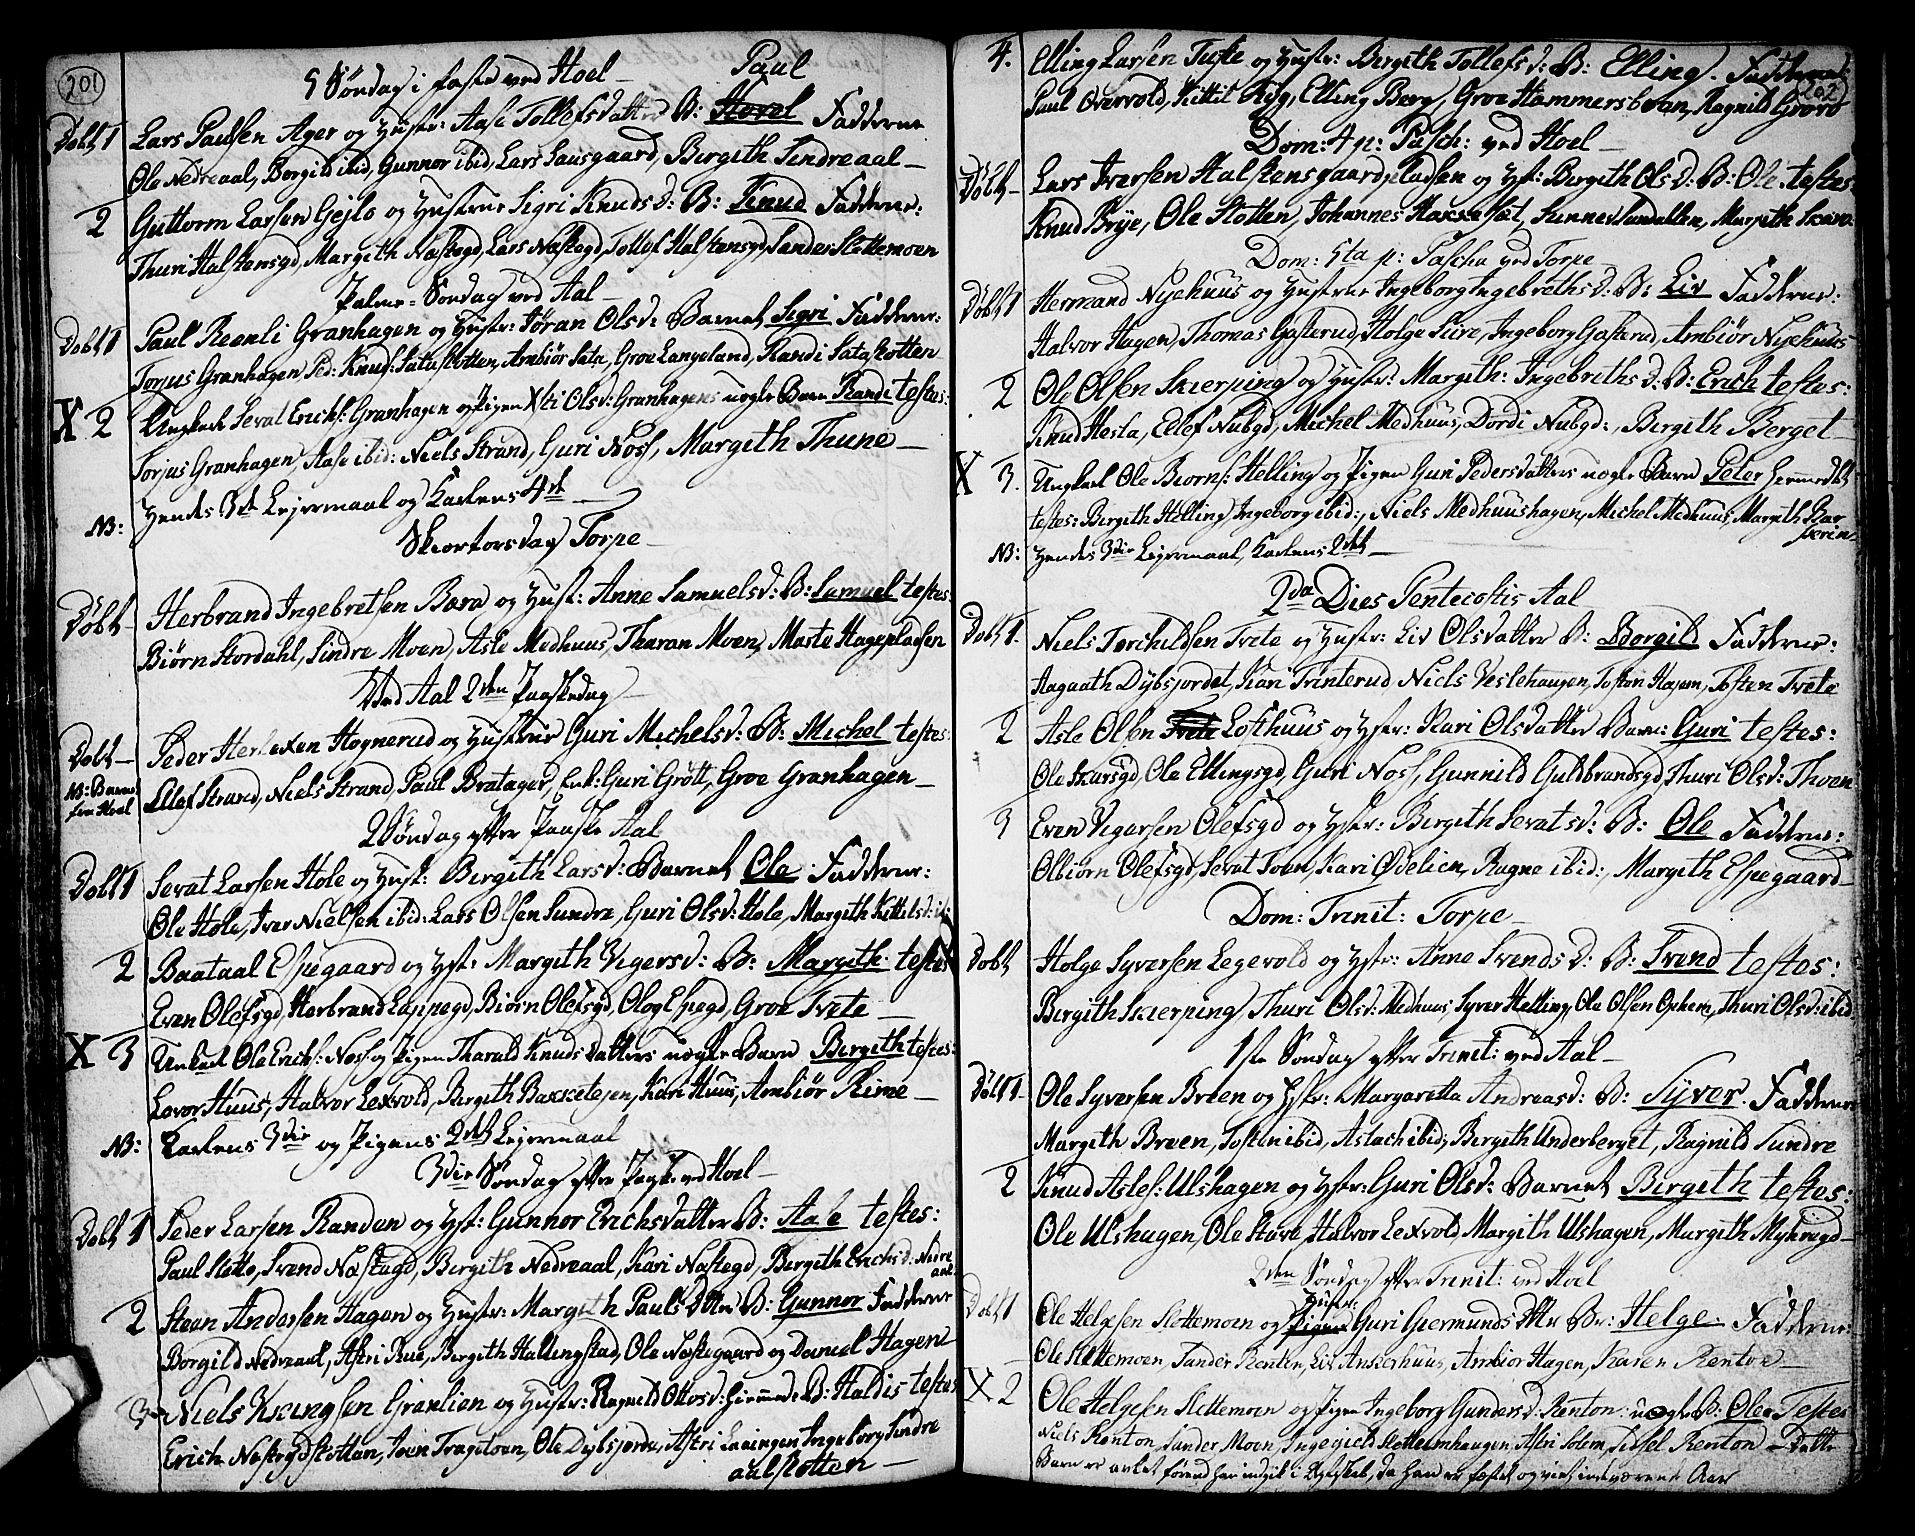 201
5 Søndag i faste ved Hoel —
Paul
Døbt 1 Lars Paulsen Ager og Hustr: Aase Tollefsdatter B: Hovel Fadderne
Ole Nedreaal, Borgild ibid, Gunnor ibid, Lars Sausgaard, Birgith Sindreaal —
2 Guttorm Larsen Gejlo og Hustrue Sigri Knudsd: B: Knud Fadderne:
Thuri Halstensgd, Margith Næstegd, Lars Næstegd, Tollef Halstensgd, Sander Slettemoen
Palme-Søndag ved Aal —
Døbt 1 Paul Reenli Granhagen og Hustr: Jøran Olsd: Barnet Sigri Fadderne:
Torjus Granhagen Ped: Knuds: Sataslotten, Ambiør Sata, Groe Langeland, Randi Sataslotten
X 2 Ungkarl Sevat Erichs: Granhagen og Pigen Xsti Olsd: Granhagens uægte Barn Randi testes:
Torjus Granhagen, Aase ibid: Niels Strand, Guri Noss, Margith Thune —
NB: Hendes 3de Lejermaal og Karlens 4de —
Skiertorsdag Torpe —
Døbt — Herbrand Ingebretsen Bæra og Hust: Anne Samuelsd: B: Samuel testes:
Biørn Stordahl, Sindre Moen, Asle Medhuus, Tharan Moen, Marte Hagepladsen
Ved Aal 2den Paaskedag —
Døbt — Peder Herlexen Høgnerud og Hustrue Guri Michelsd: B: Michel testes:
NB: Barnet fra Hoel Ellef Strand, Niels Strand, Paul Bratager, Enk: Guri Grøtt, Groe Granhagen —
2 Søndag efter Paaske Aal
Døbt 1 Sevat Larsen Hole og Hust: Birgith Larsd: Barnet Ole Fadderne:
Ole Hole, Iver Nielsen ibid: Lars Olsen Sundre, Guri Olsd: Hole, Margith Kittilsd: ib:
2 Baataal Espegaard og Hst: Margith Vigersd: B: Margith testes
Even Olefsgd, Herbrand Lappegd, Biørn Olefsgd, Ole Espegd, Groe Tvete —
X 3 Unkarl Ole Erichs: Noss og Pigen Tharald Knudsdatters uægte Barn Birgith testes:
Lavor Huus, Halvor Lexvold, Birgith Baxxetejen, Kari Huus, Ambiør Rime —
NB: Karlens 3die og Pigens 2det Lejermaal
3die Søndag efter Paaske ved Hoel —
Døbt 1 Peder Larsen Randen og Hst: Gunnor Erichsdatter B: Aase testes:
Paul Slotte, Svend Næstegd, Birgith Nedreaal, Kari Næstegd, Birgith Erichsd: Nedre
aal
2 Steen Andersen Hagen og Hustr: Margith Paulsdttr B: Gunnor Fadderne
Borgild Nedreaal, Astri Rue, Birgith Hallingstad, Ole Næstegaard og Daniel Hagen
3 Niels Grønlien og Hustr: Ragnild Ottosd: hiemmed: B: Haldis testes
Erich Næstegdslotten, Joen Trageteen, Ole Dybsjorde, Astri Leningen Ingeborg Sindre
aalslotten —
202
4. Elling Larsen Tufte og Hustr: Birgith Tollefsd: B: Elling. Fadderne:
Paul Overvold, Kittil Rug, Elling Berg, Groe Hammersboen, Ragnild Grovo
Dom: 4 p: Pasch: ved Hoel —
Døbt — Lars Iversen Halstensgaardpladsen og Hst: Birgith Olsd: B: Ole testes:
Knud Brye, Ole Slotten, Johannes Haxxesæt, Sunnev Sundallen, Margith Skaro
Dom: 5ta p: Pascha ved Torpe —
Døbt 1 Hermand Nyehuus og Hustrue Ingeborg Ingebrethsd: B: Liv Fadderne:
Halvor Hagen, Thomas Gasterud, Holge Sire, Ingeborg Gasterud, Ambiør Nyehuus
2 Ole Olsen Skierping og Hustr: Margith: Ingebrethsd: B: Erich testes:
Knud Hesla, Ellef Nubgd, Michel Medhuus, Dordi Nubgd:, Birgith Berget —
X 3. Ungkarl Ole Biørns: Helling og Pigen Guri Pedersdatters uægte Barn Peter hiemmedbt
testes: Birgith Helling, Ingeborg ibid:, Niels Medhuushagen, Michel Medhuus, Margith Bær
NB: Hendes 3die Lejermaal, Karlens 2det —
2da Dies Pentecostis Aal
Døbt 1. Niels Torchildsen Tvete og Hustr: Liv Olsdatter B: Borgild Fadderne:
Aagaath Dybsjordet, Kari Trinterud Niels Veslehaugen, Tosten Hajem, Tosten Tvete
2 Asle Olsen Tvete Lofthuus og Hstr: Kari Olsdatter Barn: Guri testes:
Ole Skarsgd, Ole Ellingsgd, Guri Noss, Gunnild Guldbrandsgd, Thuri Olsd: Thoen
3 Even Vegersen Olefsgd og Hstr: Birgith Sevatsd: B: Ole Fadderne:
Olbiørn Olefsgd, Sevat Toen, Kari Ødelien, Ragne ibid:, Margith Espegaard —
Dom: Trinit: Torpe —
Døbt Holge Syversen Legevold og Hstr: Anne Svendsd: B: Svend testes:
Birgith Skierping, Thuri Olsd: Medhuus, Syver Helling, Ole Olsen Opheim, Thuri Olsd: ibid
1ste Søndag efter Trinit: ved Aal —
Døbt 1. Ole Syversen Breen og Hstr: Margaretta Andreasd: B: Syver. Fadderne:
Margith Breen, Tosten ibid, Aslach ibid, Birgith Underberget, Ragnild Sundre
2 Knud Aslefs: Ulshagen og Hstr: Guri Olsd: Barnet Birgith testes:
Ole Ulshagen, Ole Stave, Halvor Lexvold, Margith Ulshagen, Margith Myhregd —
2den Søndag efter Trinit: ved Hoel
Hustr:
Døbt 1 Ole Helgesen Slettemoen og Pigen Guri Giermundsdttr B: Helge. Fadderne:
Ole Slettemoen, Sander Renten, Liv Ankerhuus, Ambiør Hagen, Karen Renton —
X 2 Ole Helgesen Slettemoen og Pigen Ingeborg Gundersd: Renton: uægte B: Ole. Testes
Niels Renton, Sander Moen, Ingegierd Slettemhaugen, Astri Solem, Sidsel Renton — Dette
Barn er avlet førend han indgik i Ægteskab, da han er fæstet og viet indeværende Aar